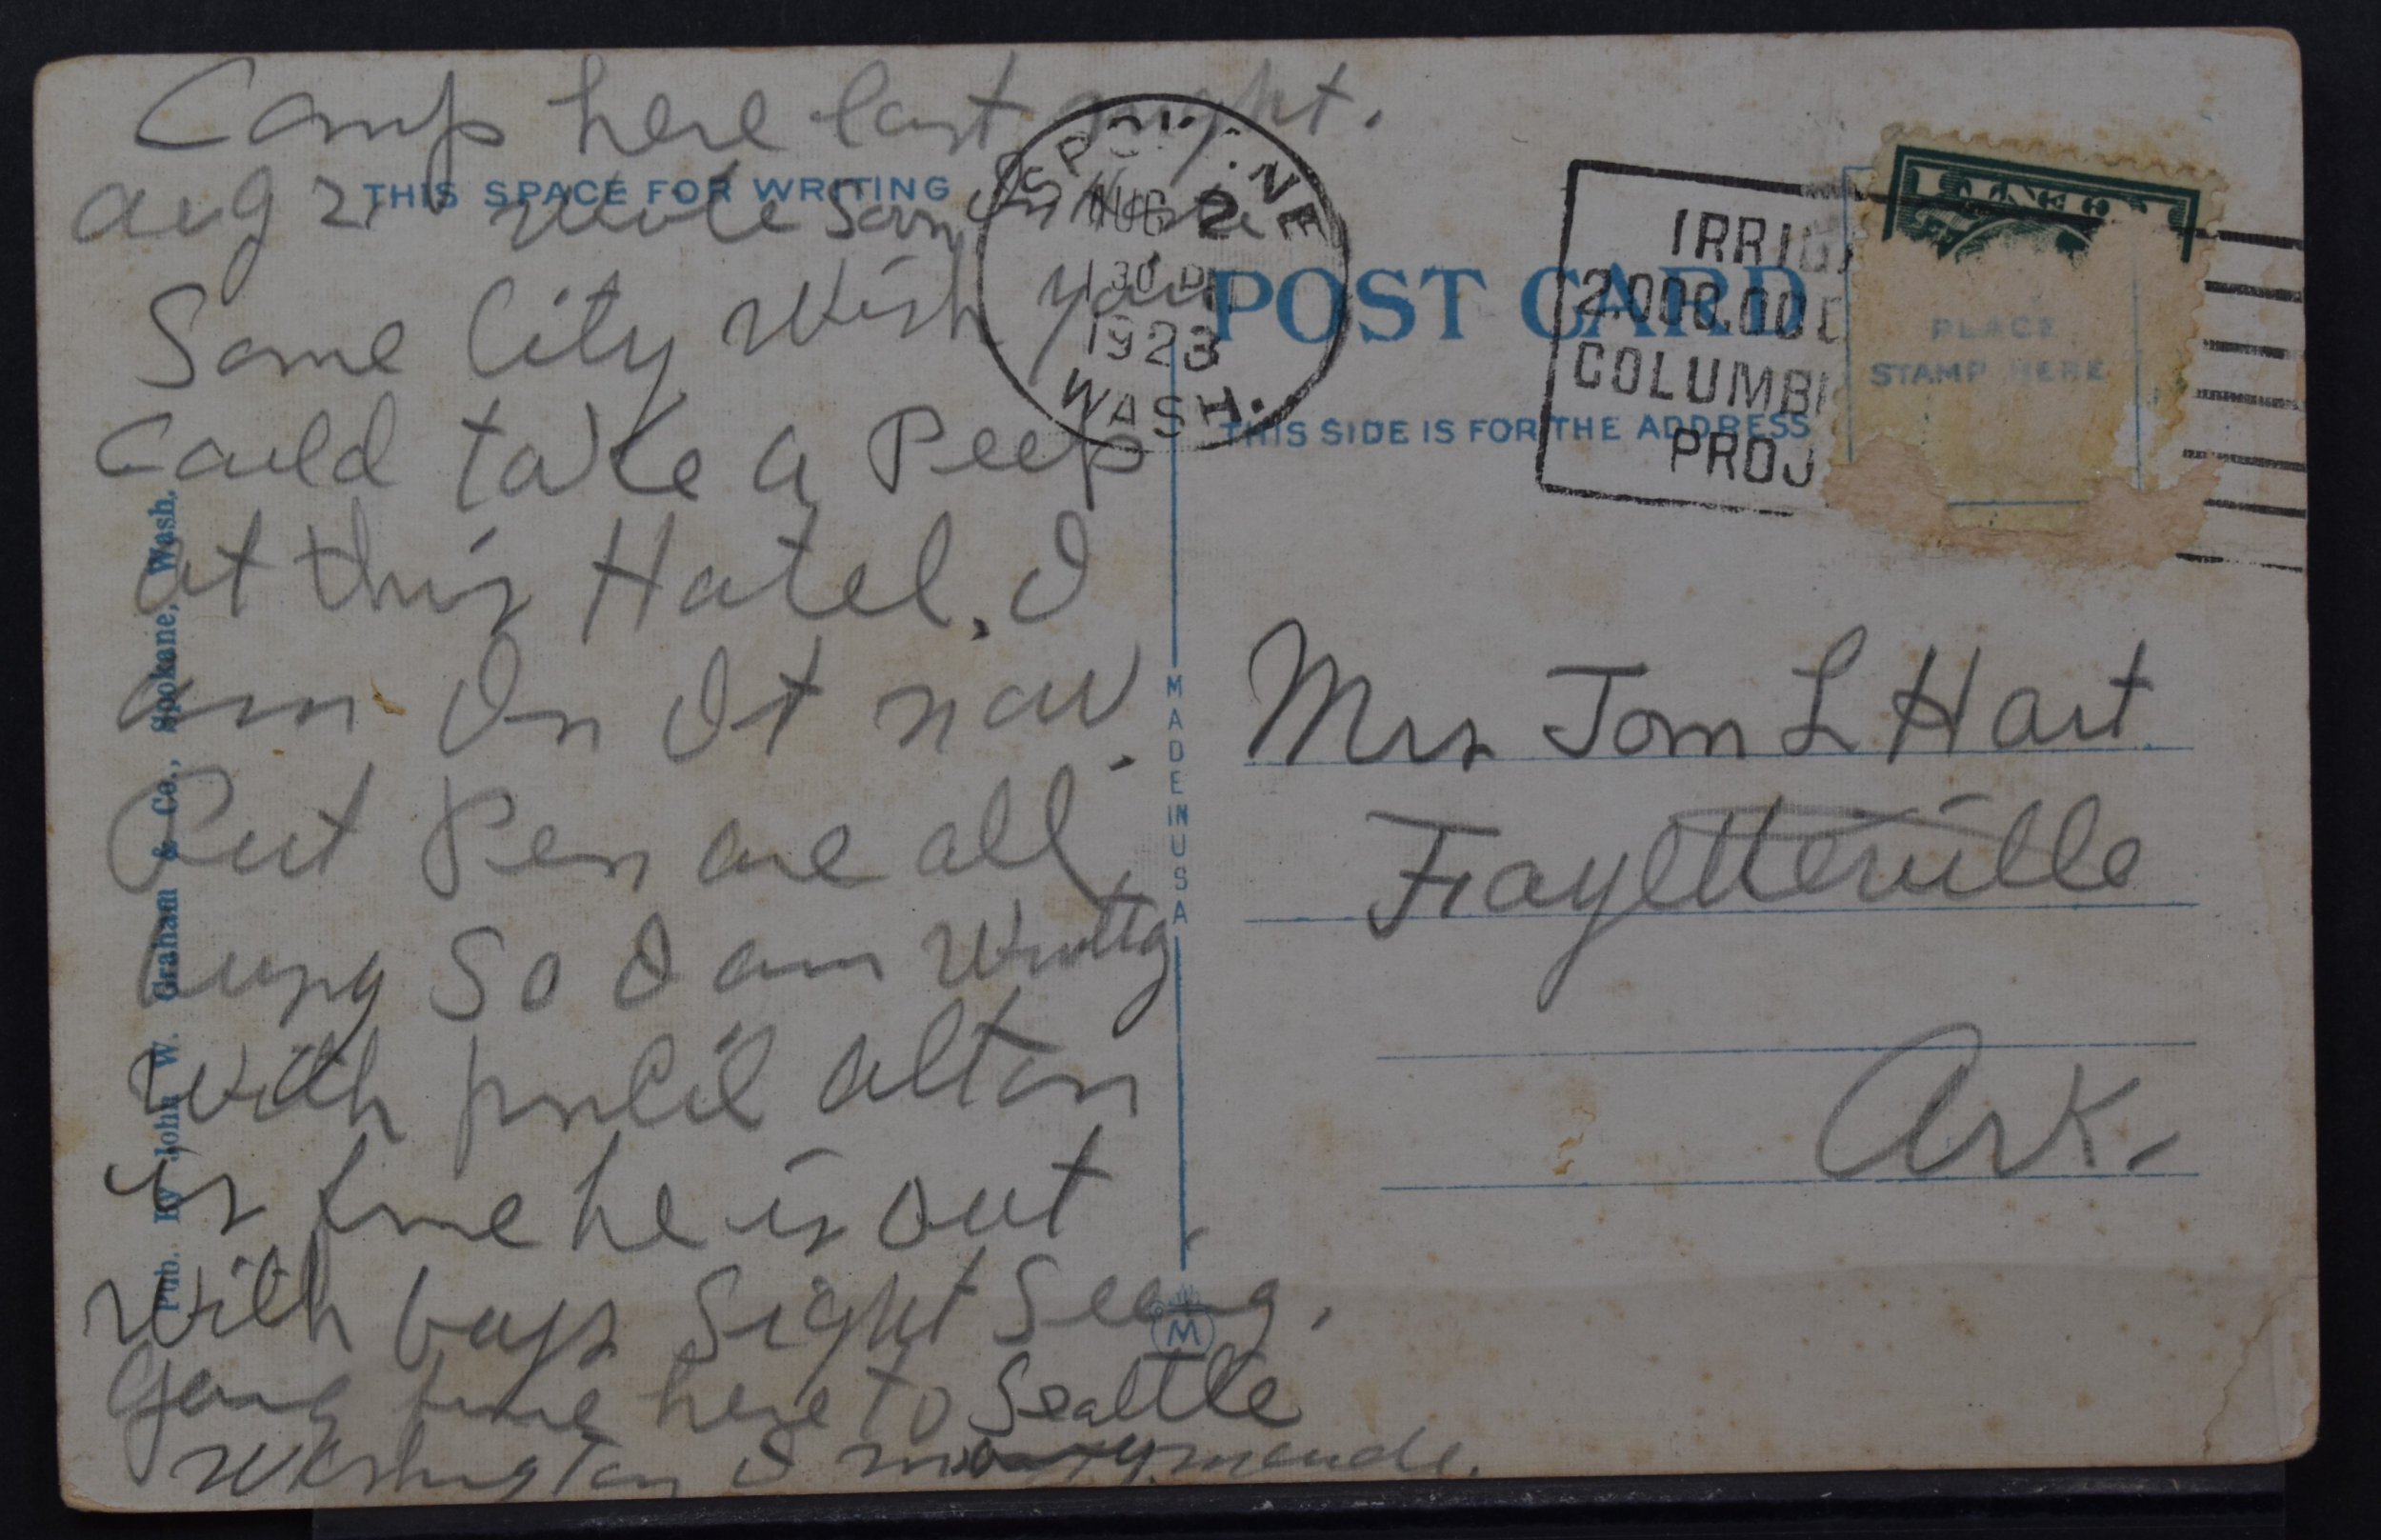 Camp here last night.
Aug 2 wrote Sam
Some City Wish you
Could take a Peep
at this Hotel. I
am In It now.
Put Pen are all
busy So I am Writtg
With pencil alton
is fine he is out
With boys Sight Seeing,
Going here to Seattle
Washington
THIS SPACE FOR WRITING
SPOKANE
AUG 2
130 P
1923
WASH.
POST CARD
THIS SIDE IS FOR THE ADDRESS
IRRIG
2,000,000
COLUMBI
PROJ
PLACE
STAMP HERE
Mrs Tom L Hart
Fayetteville
Ark.
MADE IN USA
M
Pub. By John W. Graham & Co., Spokane, Wash.